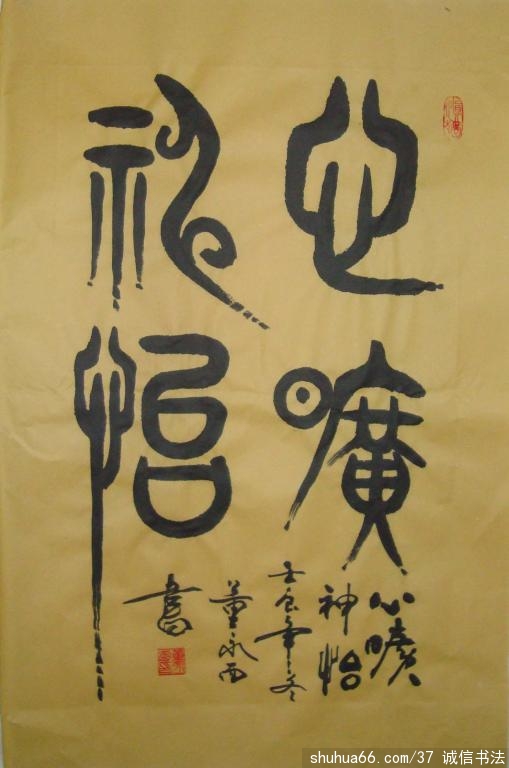 心曠
神怡
心曠
神怡
壬辰年冬
董永西
書
shuhua66.com/37 诚信书法